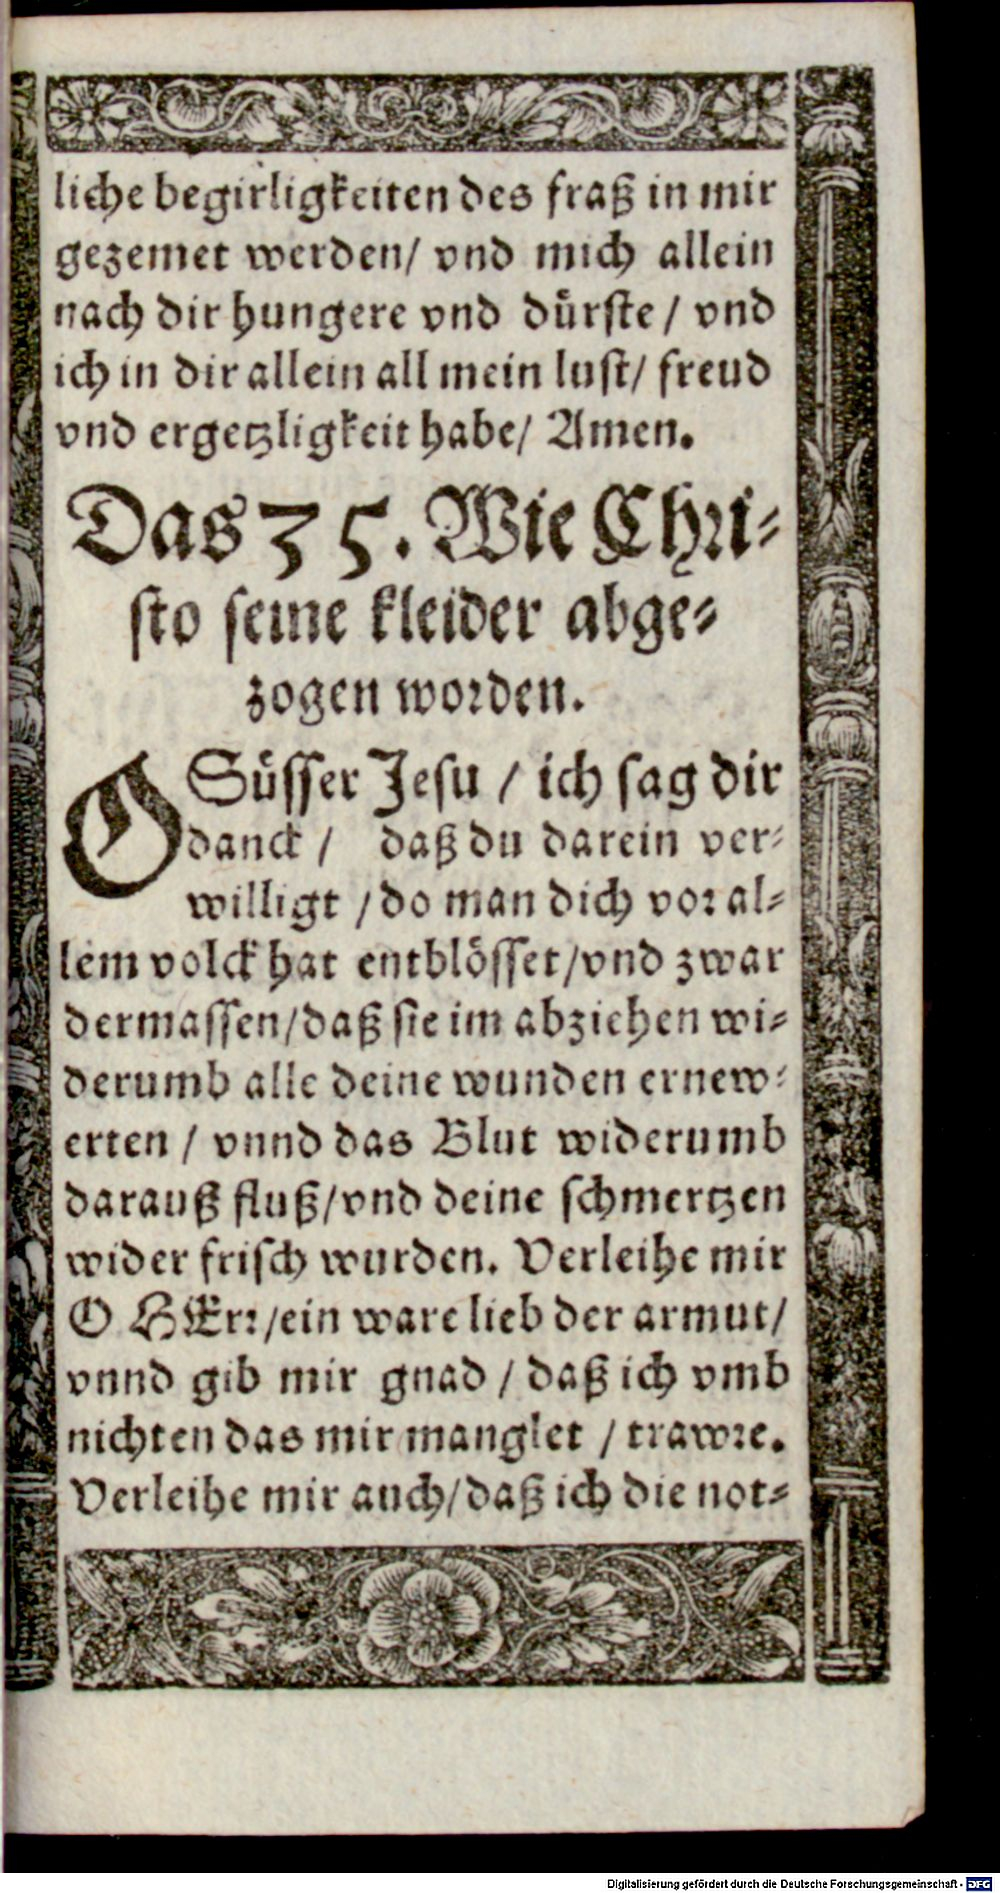 liche begirligkeiten des fraß in mir
gezemet werden/ vnd mich allein
nach dir hungere vnd dürste / vnd
ich in dir allein all mein lust/ freud
vnd ergetzligkeit habe/ Amen.
Das 35. Wie Chri-
sto seine kleider abge-
zogen worden.
O Süsser Jesu / ich sag dir
danck / daß du darein ver-
willigt / do man dich vor al-
lem volck hat entblösset/vnd zwar
dermassen/daß sie im abziehen wi-
derumb alle deine wunden ernew-
erten / vnnd das Blut widerumb
darauß fluß/vnd deine schmertzen
wider frisch wurden. Verleihe mir
O HErr/ein ware lieb der armut/
vnnd gib mir gnad / daß ich vmb
nichten das mir manglet / trawre.
Verleihe mir auch/daß ich die not-
Digitalisierung gefördert durch die Deutsche Forschungsgemeinschaft - DFG